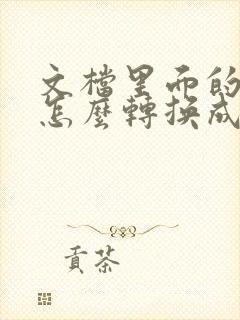 文檔里而的
怎麼轉換成
貢茶